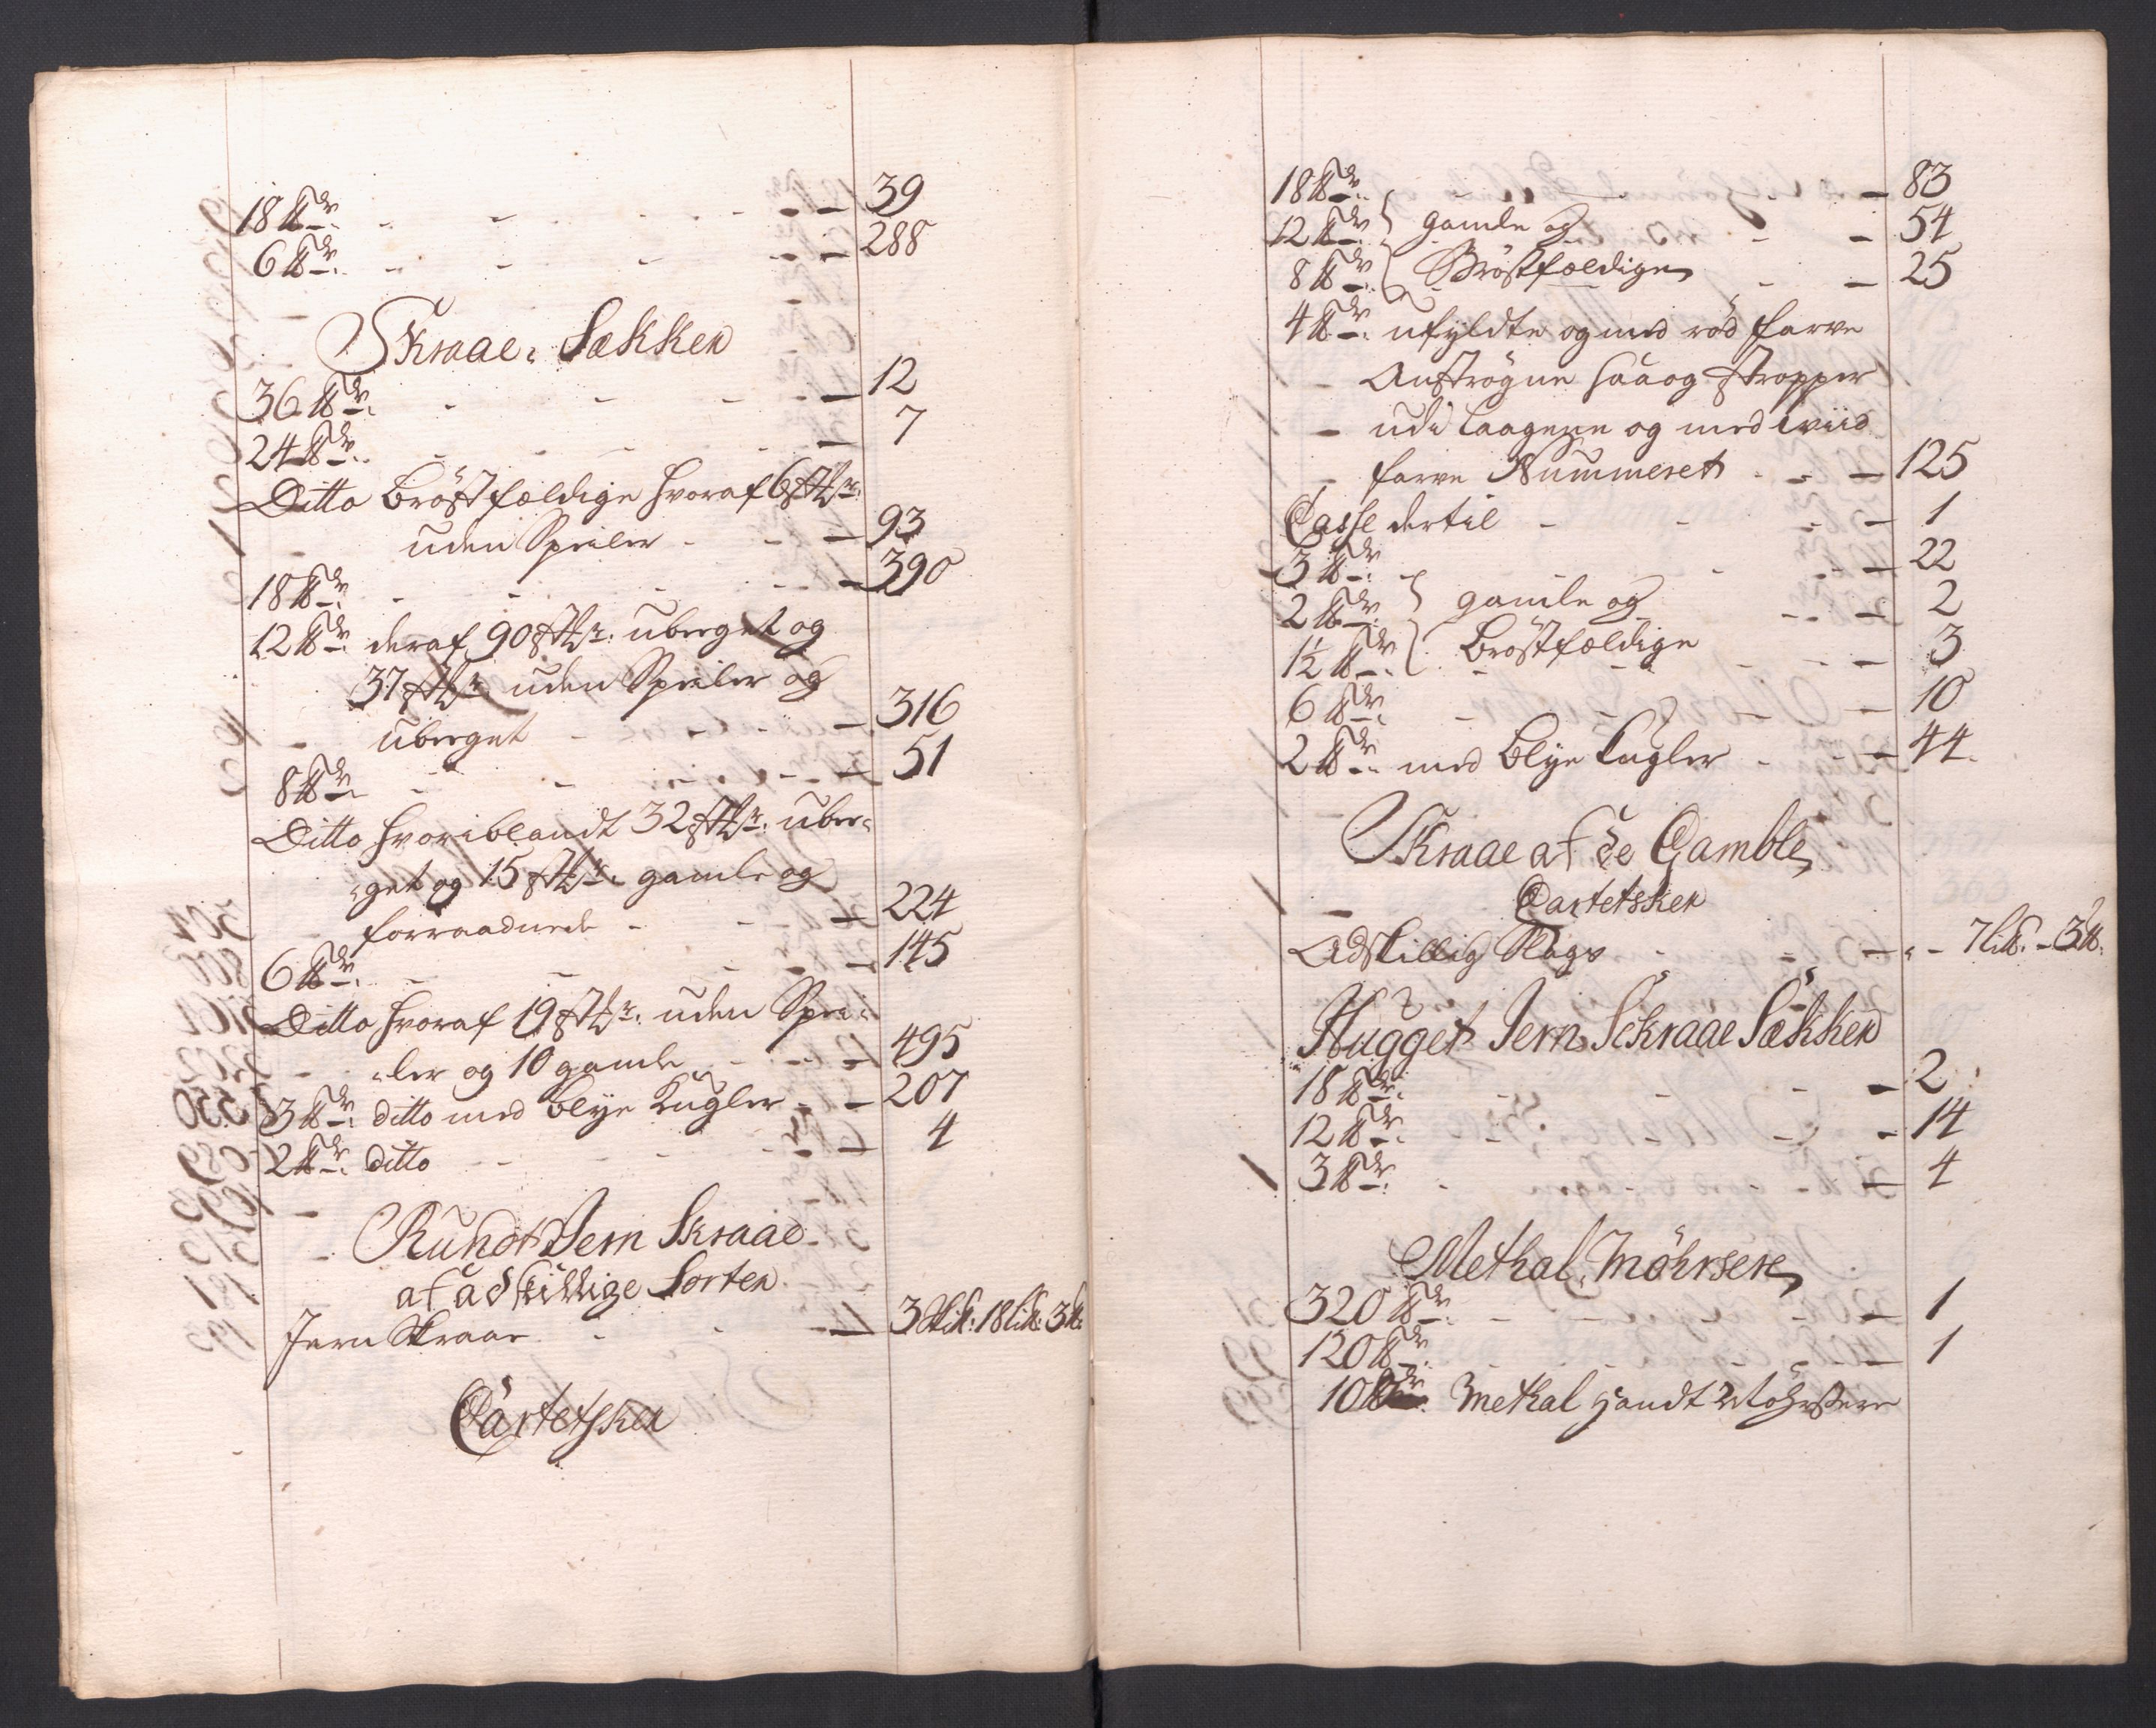 18 ℔dr. - - - 39
6 ℔dr. - - - 288
Skraae-Sækken
36 ℔dr. - - - 12
24 ℔dr. - - - 7
Ditto Bröstfældige hvoraf 6 st
uden Speiler - - 93
18 ℔dr. - - - 390
12 ℔dr. deraf 90 st uberget og
37 st uden Speiler og
uberget - - 316
8 ℔dr. - - - 51
Ditto hvoriblandt 32 st uber-
-get og 15 st gamle og
forraadnede - - 224
6 ℔dr. - - - 145
Ditto hvoraf 19 st uden Spei-
-ler og 10 gamle - - 495
3 ℔dr. ditto med Blye Kugler - - 207
2 ℔dr. ditto - - - 4
Rundt Jern Skraae
af adskillige Sorter
Jern Skraae - - - 3 18 3 ℔
Cartetsken
18 ℔dr. - - - 83
12 ℔dr. gamle og - - 54
8 ℔dr. Bröstfældige - - 25
4 ℔dr. ufyldte og med röd farve
Anströgne saa og Stropper
udi Laagene og med hviid
farve Nummeret - - 125
Casse dertil - - - 1
3 ℔dr. - - - 22
2 ℔dr. gamle og - - 2
1½ ℔dr. Bröstfældige - - 3
6 ℔dr. - - - 10
2 ℔dr. med Blye Cugler - - 44.
Skraae af de Gamble
Cartetsken
Adskillig Slags - - - 7 li℔. - 3 ℔.
Hugget Jern Schraae Sækken
18 ℔dr. - - - 2
12 ℔dr. - - - 14
3 ℔dr. - - - 4
Methal. Möhrsere
320 ℔dr. - - - 1
120 ℔dr. - - - 1
10 ℔dr. Methal Handt Möhrsere